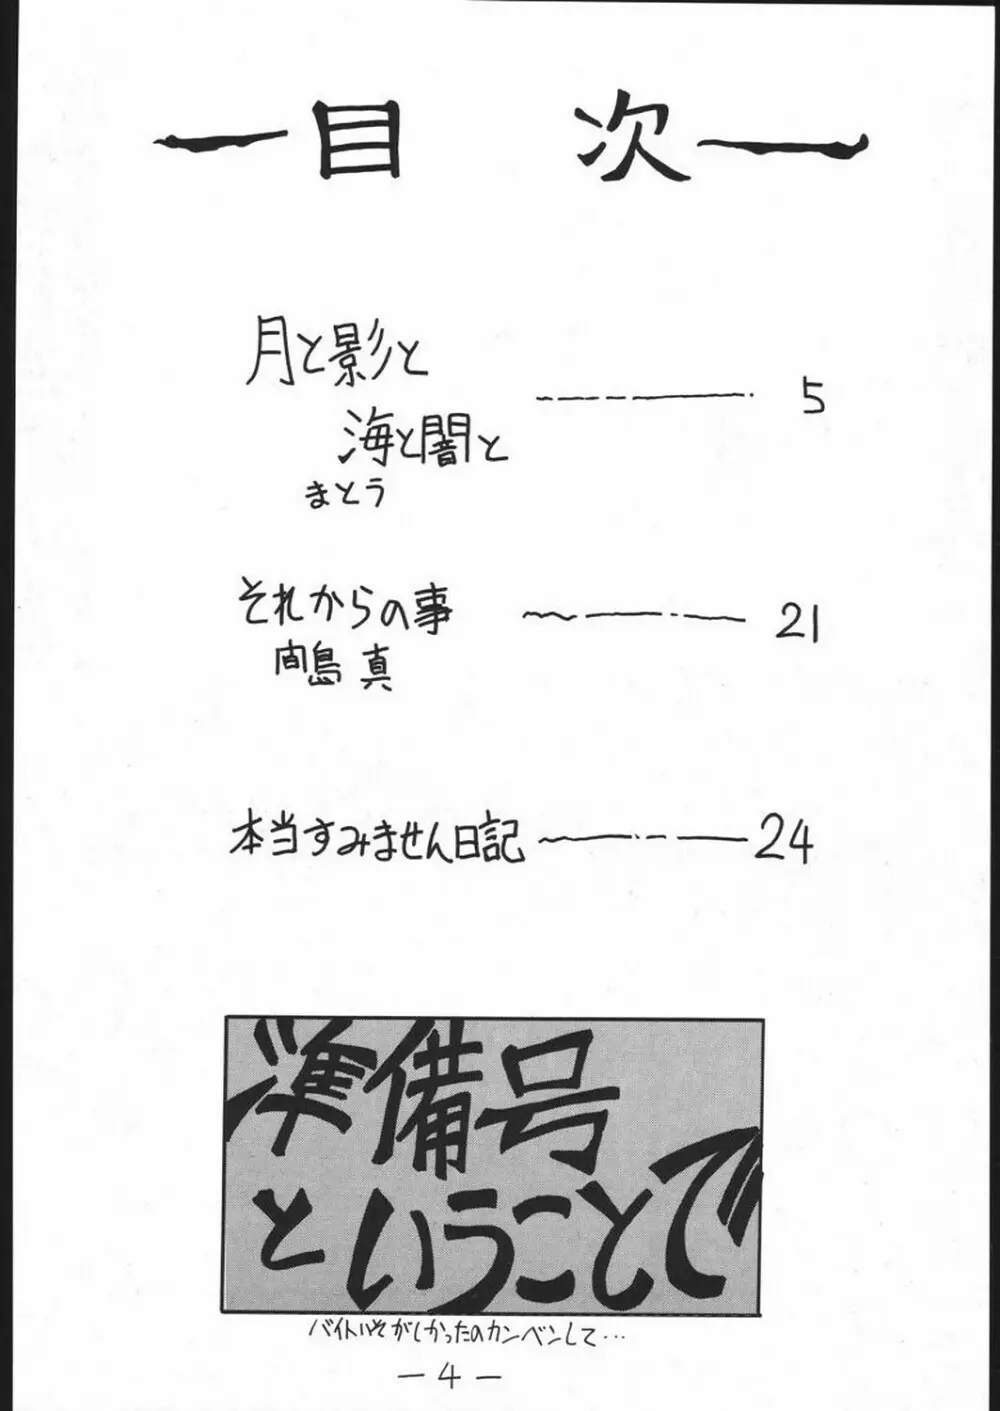 目 次
月と影と
海と闇と
まとう
5
それからの事
向島 真
21
本当すみません日記
24
準備号
ということで
バイトいそがしかったのカンベンして…
－4－